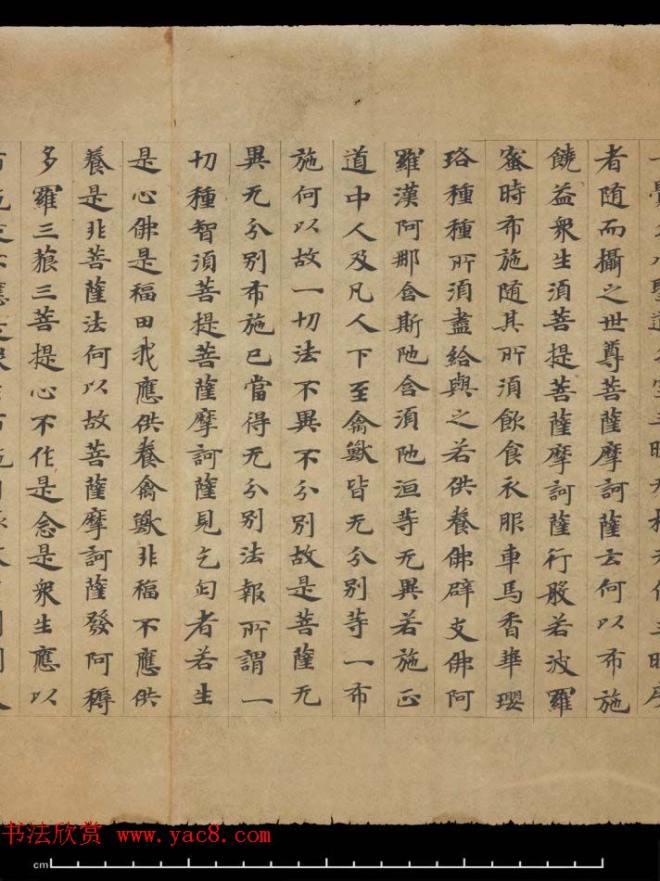 者隨而攝之世尊菩薩摩訶薩云何以布施
饒益衆生須菩提菩薩摩訶薩行般若波羅
蜜時布施隨其所須飲食衣服車馬香華瓔
珞種種所須盡給與之若供養佛辟支佛阿
羅漢阿那含斯陁含須陁洹等无異若施正
道中人及凡人下至禽獸皆无分別等一布
施何以故一切法不異不分別故是菩薩无
異无分別布施已當得无分別法報所謂一
切種智須菩提菩薩摩訶薩見乞匃者若生
是心佛是福田我應供養禽獸非福不應供
養是非菩薩法何以故菩薩摩訶薩發阿耨
多羅三藐三菩提心不作是念是衆生應以
书法欣赏 www.yac8.com
cm